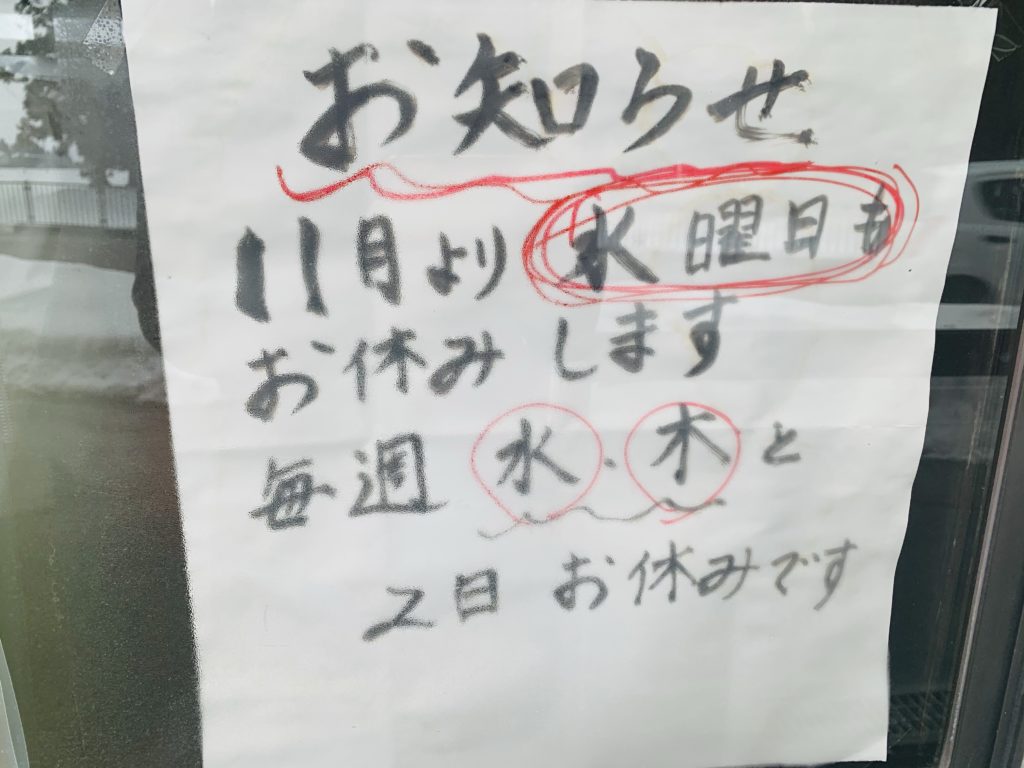 お知らせ
11月より水曜日も
お休みします
毎週 水、木と
2日 お休みです